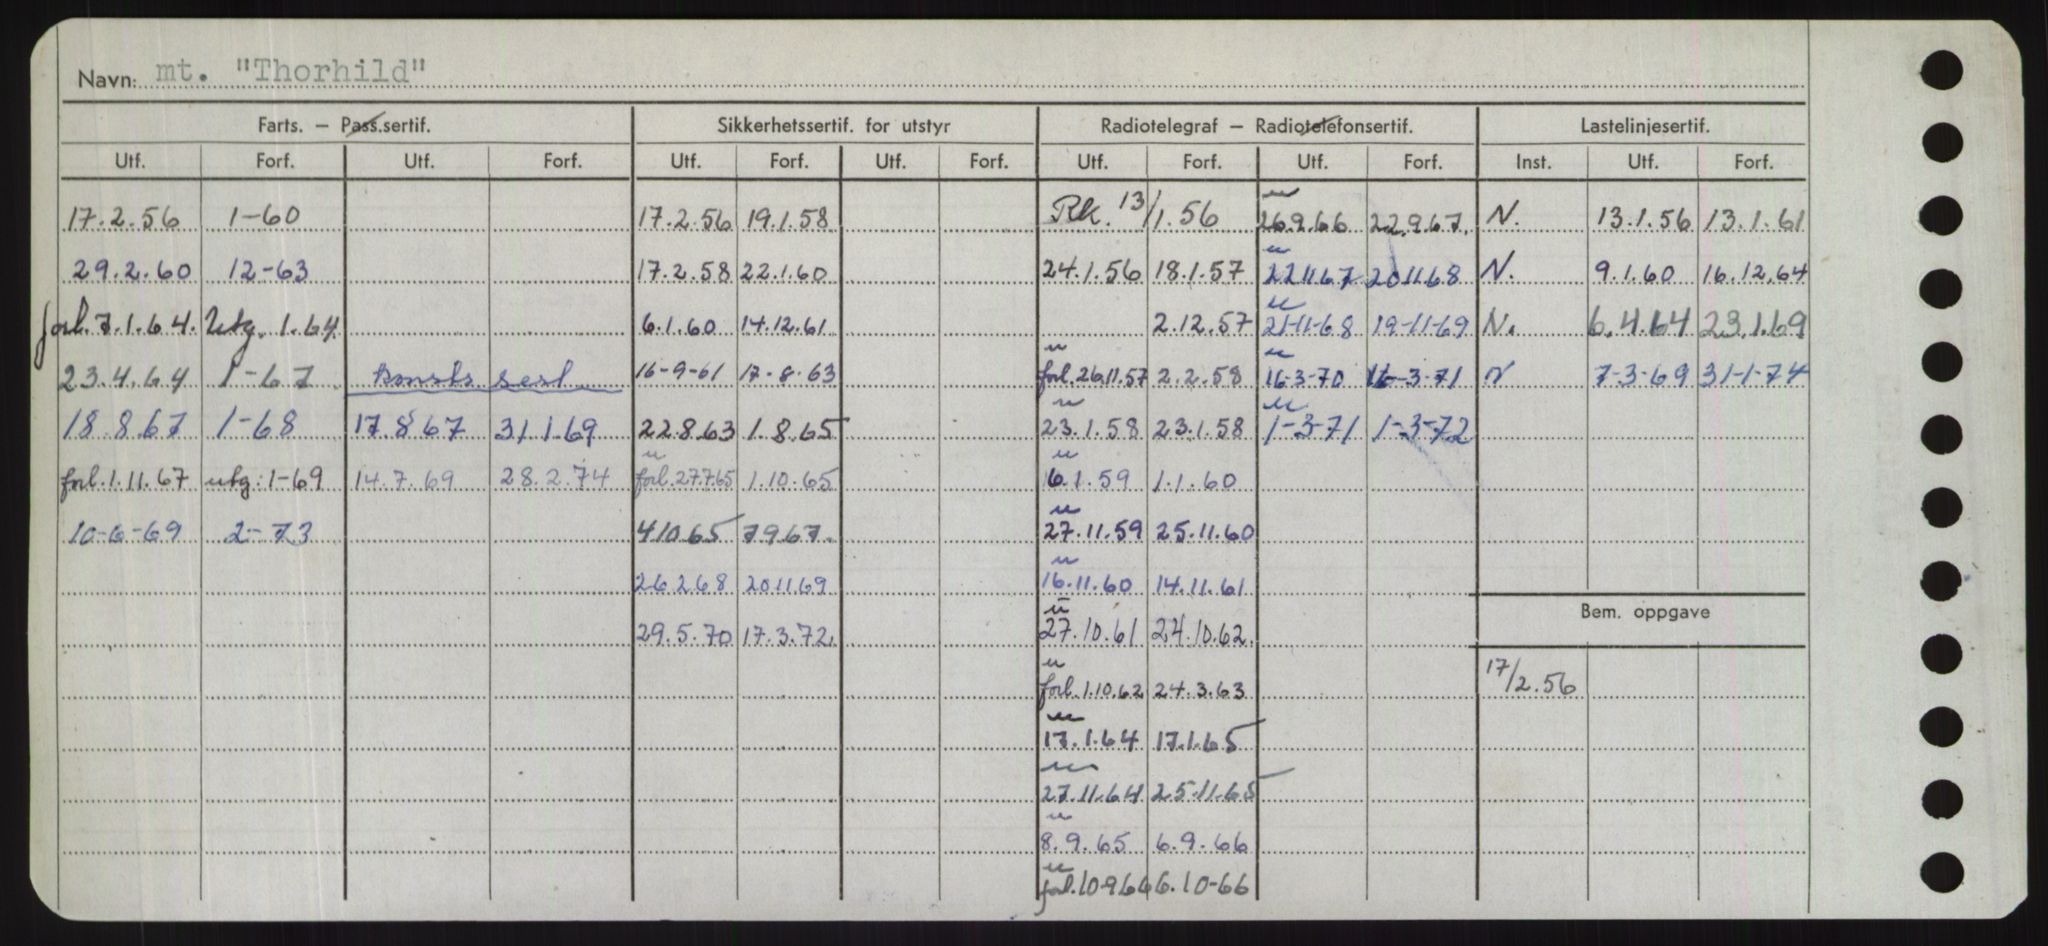 Navn: mt. "Thorhild"
Farts. – Pass.sertif. Sikkerhetssertif. for utstyr Radiotelegraf – Radiotelefonsertif. Lastelinjesertif.
Utf. Forf. Utf. Forf. Utf. Forf. Utf. Forf. Utf. Forf. Utf. Forf. Inst. Utf. Forf.
17.2.56 1-60 17.2.56 19.1.58 Rk. 13/1.56 u 26.9.66 22.9.67. N. 13.1.56 13.1.61
29.2.60 12-63 17.2.58 22.1.60 24.1.56 18.1.57 u 22.11.67 20.11.68 N. 9.1.60 16.12.64
forl. 7.1.64. Utg. 1.64. 6.1.60 14.12.61 2.12.57 u 21-11-68 19-11-69 N. 6.4.64 23.1.69
23.4.64 1-67 konstr sert. 16-9-61 17-8.63 u forl. 26.11.57 2.2.58 u 16-3-70 16-3-71 N 7-3-69 31-1-74
18.8.67 1-68 17.8.67 31.1.69 22.8.63 1.8.65 u 23.1.58 23.1.58 u 1-3-71 1-3-72
forl. 1.11.67 utg: 1-69 14.7.69 28.2.74 u forl. 27.7.65 1.10.65 u 6.1.59 1.1.60
10-6-69 2-73 4.10.65 7.9.67. u 27.11.59 25.11.60
26.2.68 20.11.69 u 16.11.60 14.11.61
Bem. oppgave
29.5.70 17.3.72. u 27.10.61 24.10.62.
u forl. 1.10.62 24.3.63 17/2.56
u 17.1.64 17.1.65
u 27.11.64 25.11.65
u 8.9.65 6.9.66
u forl. 10-9.66 6.10-66